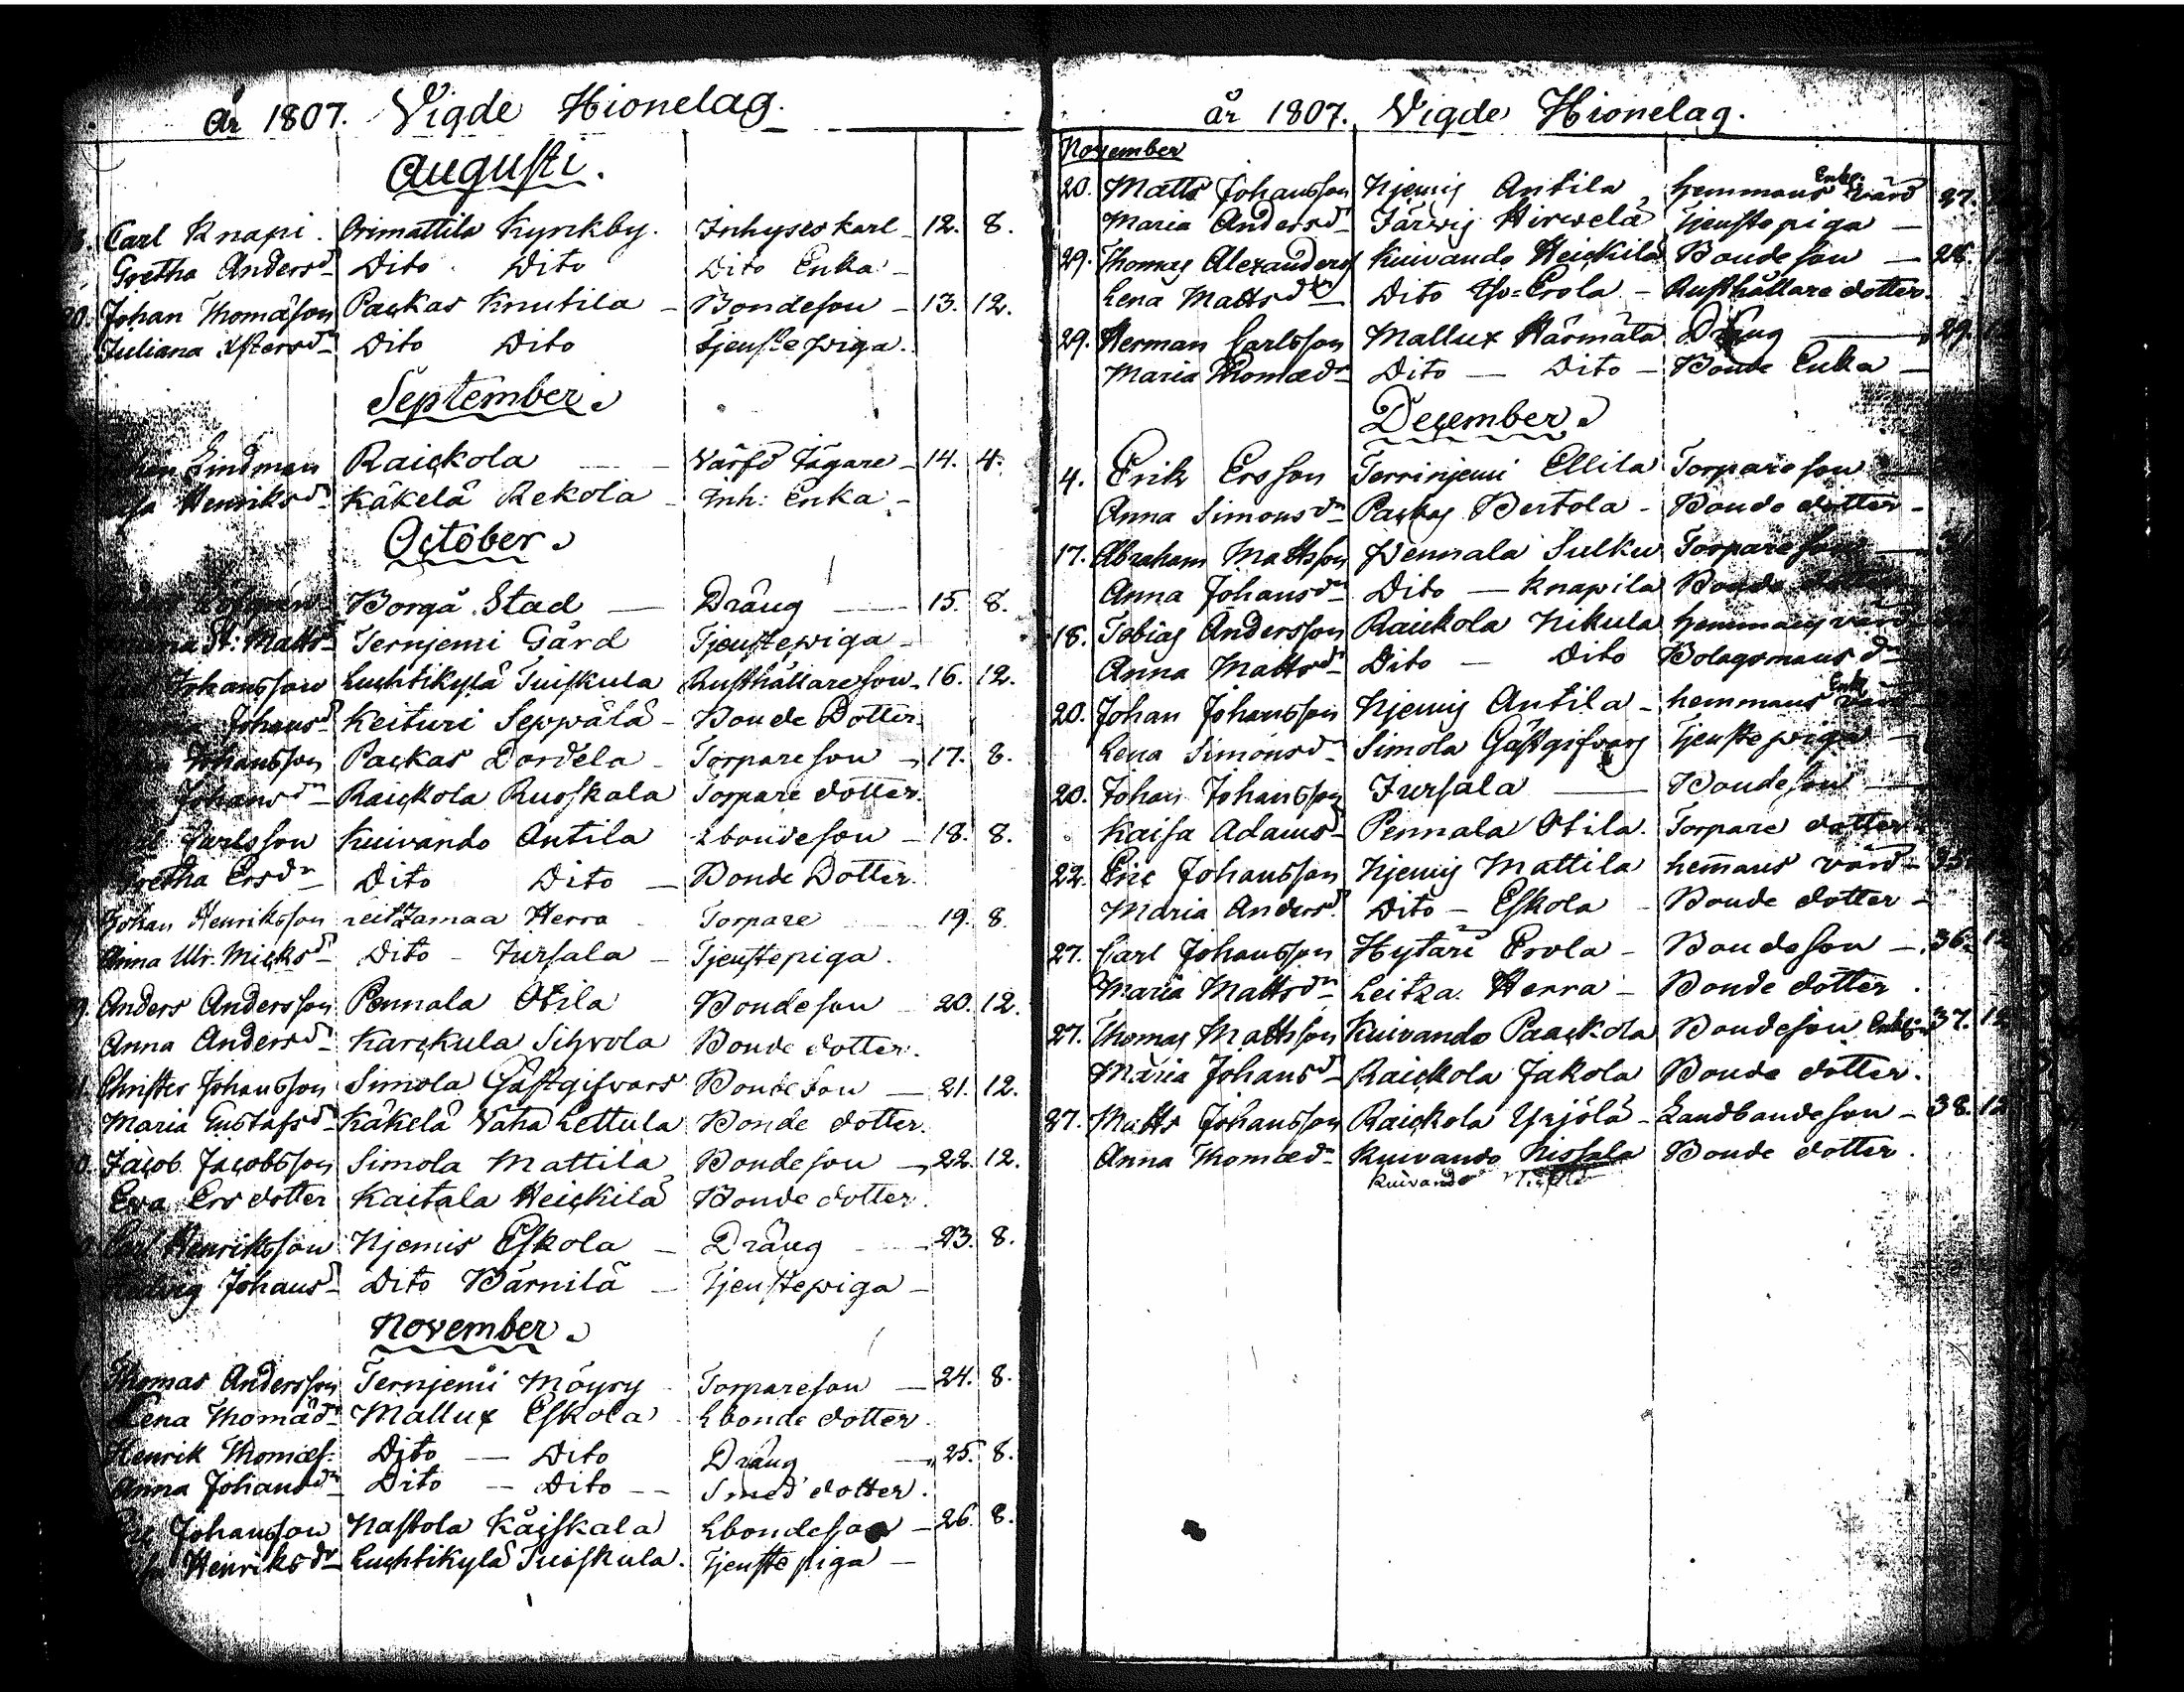 år 1807. Vigde Hionelag.
Augusti.
Carl Knapi. Orimattila Kynkby. Inhyses karl 12. 8.
Gretha Andersdr Dito Dito Dito Enka
20. Johan Thomasson Packas Knutila Bondeson 13. 12.
Juliana Dito Dito Tjenstepiga.
September
Lindman Raickola Värfd Jägare 14. 4.
Henriksdr Käkelä Rekola Inh: Enka
October
Borgå Stad Dräng 15. 8.
St: Mattsdr Ternjemi Gård Tjenstepiga
Johansson Luchtikylä Tuiskula Rusthållareson 16. 12.
Johansdr Keituri Seppälä Bonde Dotter
Johansson Packas Dordela Torpareson 17. 8.
Johansdr Raickola Ruoskala Torpare dotter.
Carlsson Kuivando Antila Lbondeson 18. 8.
Gretha Ersdr Dito Dito Bonde Dotter.
Johan Henriksson Leitzamaa Herra Torpare 19. 8.
Anna Ulr. Micksdr Dito Jursala Tjenstepiga.
Anders Andersson Pennala Otila Bondeson 20. 12.
Anna Andersdr Karckula Sihvola Bonde dotter.
Christer Johansson Simola Gästgifvars Bondeson 21. 12.
Maria Gustafsdr Käkelä Vaha Lettula Bonde dotter.
Jacob Jacobsson Simola Mattila Bondeson 22. 12.
Eva Ers dotter Kaitala Heickilä Bonde dotter.
Carl Henriksson Njemis Eskola Dräng 23. 8.
Hedvig Johansdr Dito Bärnilä Tjenstepiga
November
Thomas Andersson Ternjemi Möyry Torpareson 24. 8.
Lena Thomædr Mallux Eskola Lbonde dotter.
Henrik Thomæs. Dito Dito Dräng 25. 8.
Anna Johansdr Dito Dito Smed dotter.
Johansson Nastola Käiskala Lbondeson 26. 8.
Henriksdr Luchtikylä Tuiskula. Tjenstepiga
år 1807. Vigde Hionelag.
November
20. Matts Johansson Njemis Antila hemmans Enkl. värd 27.
Maria Andersdr Järvis Hirvelä Tjenstepiga
29. Thomas Alexanders Kuivando Heickilä Bondeson 28.
Lena Mattsdr Dito Erola Rusthållare dotter.
29. Herman Carlsson Mallux Härmälä Dräng 29.
Maria Thomædr Dito Dito Bonde Enka
December
4. Erik Ersson Terrinjemi Ellila Torpareson
Anna Simonsdr Packas Bertola Bonde dotter
17. Abraham Mattsson Wennala Sulku Torpareson
Anna Johansdr Dito Knapila Bonde dotter
18. Tobias Andersson Raickola Nikula hemmans värd
Anna Mattsdr Dito Dito Bolagsmans dr
20. Johan Johansson Njemis Antila hemmans Enkl. värd
Lena Simonsdr Simola Gästgifvars Tjenstepiga
20. Johan Johansson Jursala Bondeson
Kaisa Adamsdr Pennala Otila. Torpare dotter
22. Eric Johansson Njemis Mattila hem̄ans värd 35
Maria Andersd. Dito Eskola Bonde dotter
27. Carl Johansson Hytäri Erola Bondeson 36. 12
Maria Mattsdr Leitza. Herra Bonde dotter.
27. Thomas Mattsson Kuivando Paackola Bondeson 37. 12
Maria Johansdr Raickola Jakola Bonde dotter.
27. Matts Johansson Raickola Yrjölä Landbondeson 38. 12
Anna Thomædr Kuivando Nissala Bonde dotter.
Kuivando